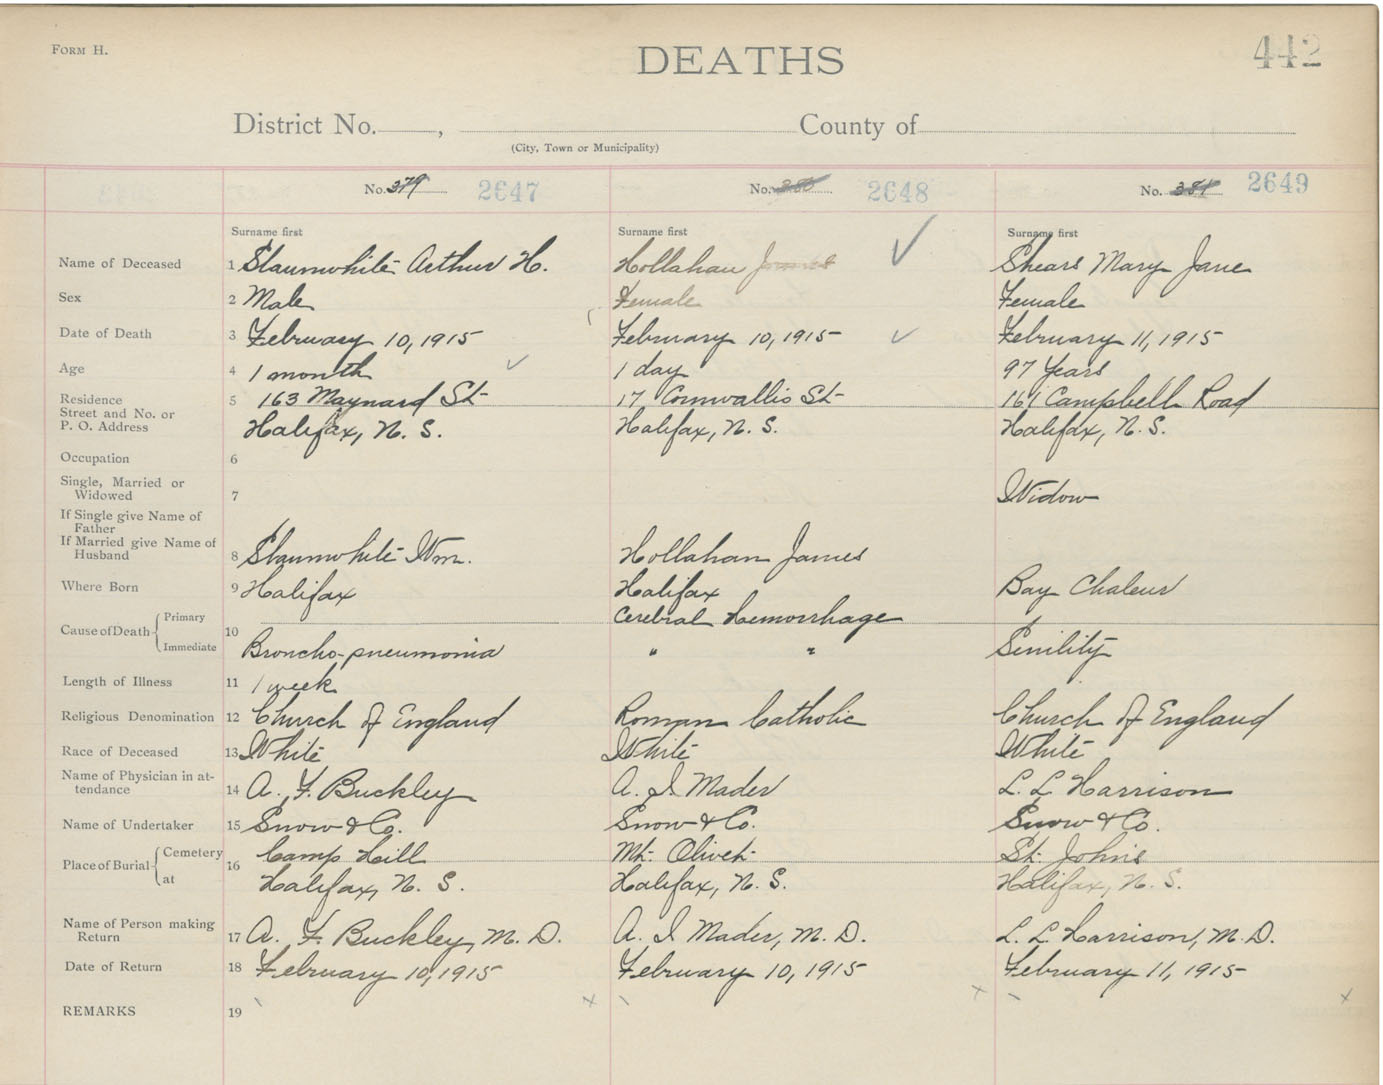 FORM H.
DEATHS
442
District No. , County of
(City, Town or Municipality)
No. 379 2647 No. 380 2648 No. 381 2649
Surname first Surname first Surname first
Name of Deceased 1 Slaunwhite Arthur H. Hollahan James Shears Mary Jane
Sex 2 Male Female Female
Date of Death 3 February 10, 1915 February 10, 1915 February 11, 1915
Age 4 1 month 1 day 97 Years
Residence 5 163 Maynard St 17, Cornwallis St 161 Campbell Road
Street and No. or
P. O. Address Halifax, N. S. Halifax, N. S. Halifax, N. S.
Occupation 6
Single, Married or
Widowed 7 Widow
If Single give Name of
Father
If Married give Name of
Husband 8 Slaunwhite Wm. Hollahan James
Where Born 9 Halifax Halifax Bay Chaleur
Cause of Death Primary Cerebral Hemorrhage
10
Immediate Broncho-pneumonia " " Senility
Length of Illness 11 1 week
Religious Denomination 12 Church of England Roman Catholic Church of England
Race of Deceased 13 White White White
Name of Physician in at-
tendance 14 A. F. Buckley A. I Mader L. L Harrison
Name of Undertaker 15 Snow & Co. Snow & Co. Snow & Co.
Place of Burial Cemetery 16 Camp Hill Mt. Olivet St. Johns
at Halifax, N. S. Halifax, N. S. Halifax, N. S.
Name of Person making
Return 17 A. F. Buckley, M. D. A. I Mader, M. D. L. L Harrison, M. D.
Date of Return 18 February 10, 1915 February 10, 1915 February 11, 1915
REMARKS 19